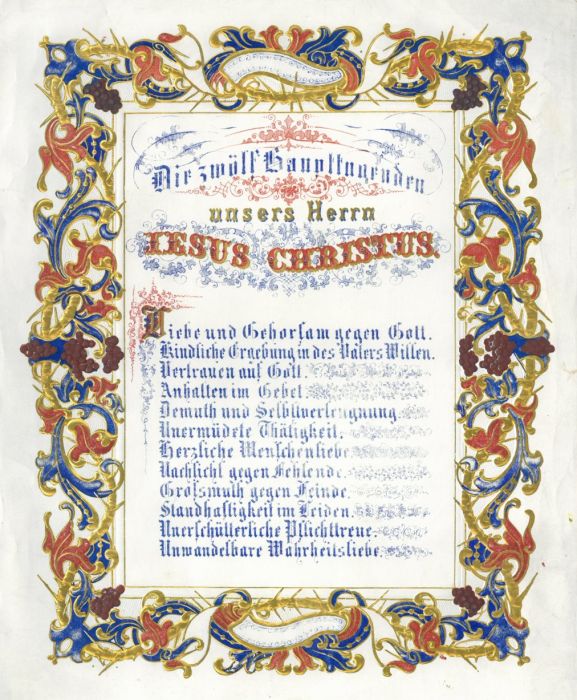 Die zwölf Haupttugenden
unsers Herrn
IESUS CHRISTUS.
Liebe und Gehorsam gegen Gott.
Kindliche Ergebung in des Vaters Willen.
Vertrauen auf Gott.
Anhalten im Gebet.
Demuth und Selbstverleugnung.
Unermüdete Thätigkeit.
Herzliche Menschenliebe.
Nachsicht gegen Fehlende.
Grofsmuth gegen Feinde.
Standhaftigkeit im Leiden.
Unerschütterliche Pflichttreue.
Unwandelbare Wahrheitsliebe.